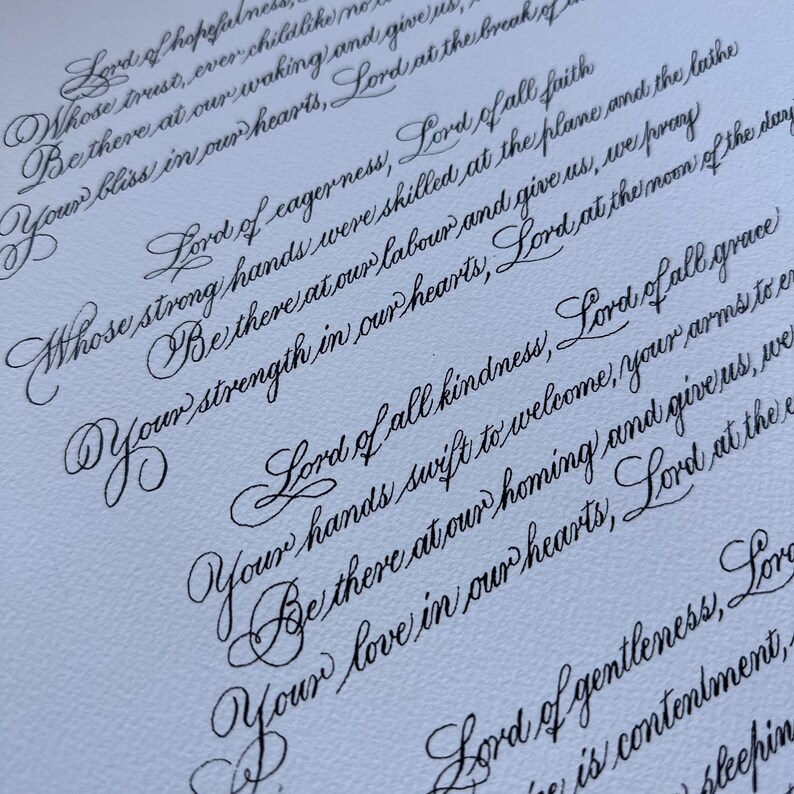 Lord of hopefulness,
Whose trust, ever childlike, no
Be there at our waking and give us,
Your bliss in our hearts, Lord at the break of
Lord of eagerness, Lord of all faith
Whose strong hands were skilled at the plane and the lathe
Be there at our labour and give us, we pray
Your strength in our hearts, Lord at the noon of the day
Lord of all kindness, Lord of all grace
Your hands swift to welcome, your arms to
Be there at our homing and give us, we
Your love in our hearts, Lord at the
Lord of gentleness, Lord
is contentment,
sleepin